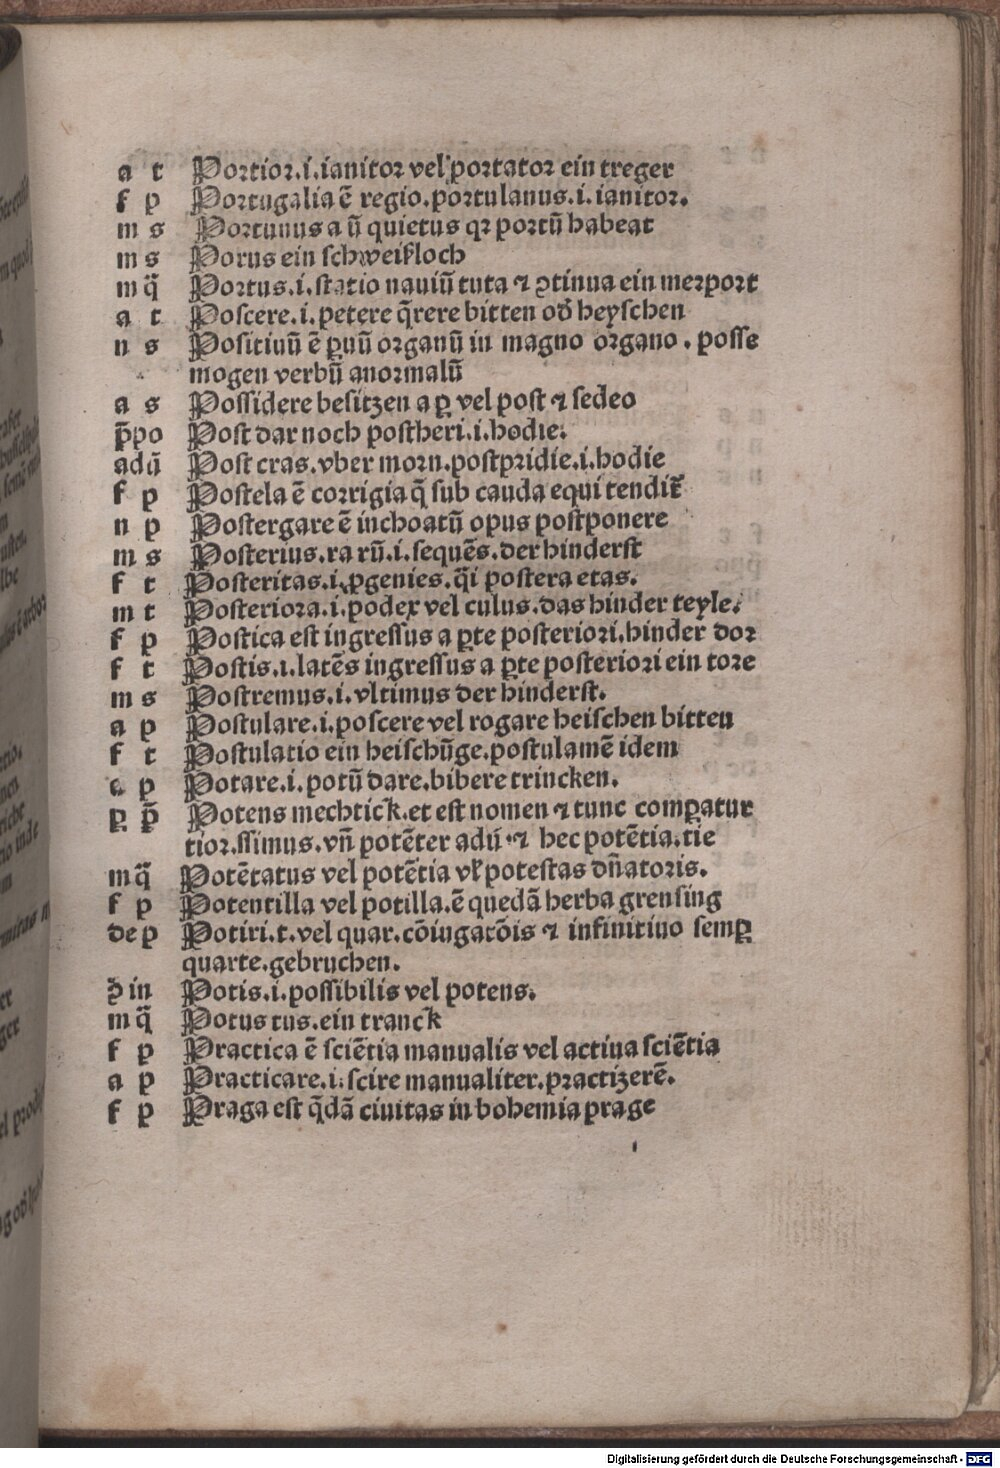 a t Portior.i.ianitor vel portator ein treger
f p Portugalia ē regio.portulanus.i.ianitor.
m s Portunus a ū quietus qꝛ portū habeat
m s Porus ein schweißloch
m q̄ Portus.i.statio nauiū tuta ⁊ ꝯtinua ein merport
a t Poscere.i.petere q̄rere bitten oď heyschen
n s Positiuū ē ꝑuū organū in magno organo . posse
mogen verbū anormalū
a s Possidere besitzen a ꝑ vel post ⁊ sedeo
p̄po Post dar noch postheri.i.hodie.
adū Post cras.vber morn.postpridie.i.hodie
f p Postela ē corrigia q̄ sub cauda equi tendit̄
n p Postergare ē inchoatū opus postponere
m s Posterius.ra rū.i.sequēs.der hinderst
f t Posteritas.i.ꝓgenies.q̄i postera etas.
m t Posteriora.i.podex vel culus.das hinder teyle.
f p Postica est ingressus a ꝑte posteriori.hinder dor
f t Postis.i.latēs ingressus a ꝑte posteriori ein tore
m s Postremus.i.vltimus der hinderst.
a p Postulare.i.poscere vel rogare heischen bitten
f t Postulatio ein heischūge.postulamē idem
a p Potare.i.potū dare.bibere trincken.
ꝑ p̄ Potens mechtick.et est nomen ⁊ tunc comꝑatur
tior.ssimus.vn̄ potēter adū ⁊ hec potētia.tie
mq̄ Potētatus vel potētia vł potestas dn̄atoris.
f p Potentilla vel potilla.ē quedā herba grensing
de p Potiri.t.vel quar.cōiugatōis ⁊ infinitiuo semꝑ
quarte.gebruchen.
in Potis.i.possibilis vel potens.
mq̄ Potus tus.ein tranck
f p Practica ē sciētia manualis vel actiua sciētia
a p Practicare.i.scire manualiter.practizerē.
f p Praga est q̄dā ciuitas in bohemia prage
Digitalisierung gefördert durch die Deutsche Forschungsgemeinschaft - DFG